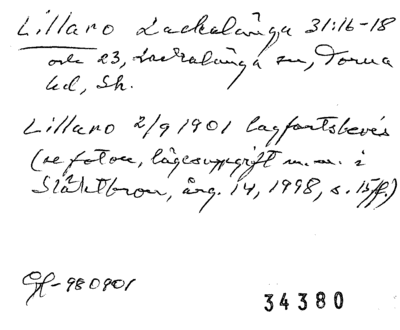 Lillaro Lackalänga 31:16-18
och 23, Lackalänga sn, Torna
hd, Sk.
Lillaro 2/9 1901 lagfartsbevis
(se foton, lägesuppgift m.m. i
Släktbron, årg. 14, 1998, s. 15ff.)
-980901
34380